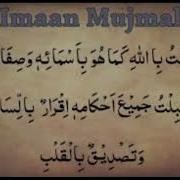 Imaan Mujmal
بِاللّٰهِ كَمَا هُوَ بِاَسْمَائِهٖ وَصِفَا
جَمِيْعَ اَحْكَامِهٖ اِقْرَارٌ بِاللِّسَا
وَتَصْدِيْقٌ بِالْقَلْبِ